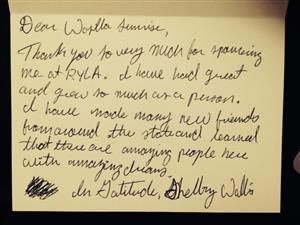 Dear Walla Sunrise,
Thank you so very much for sponsering
me at RYLA. I have had great
and grew so much as a person.
I have made many new friends
from around the state and learned
that there are amazing people here
with amazing dreams.
In Gratitude, Shelby Walls